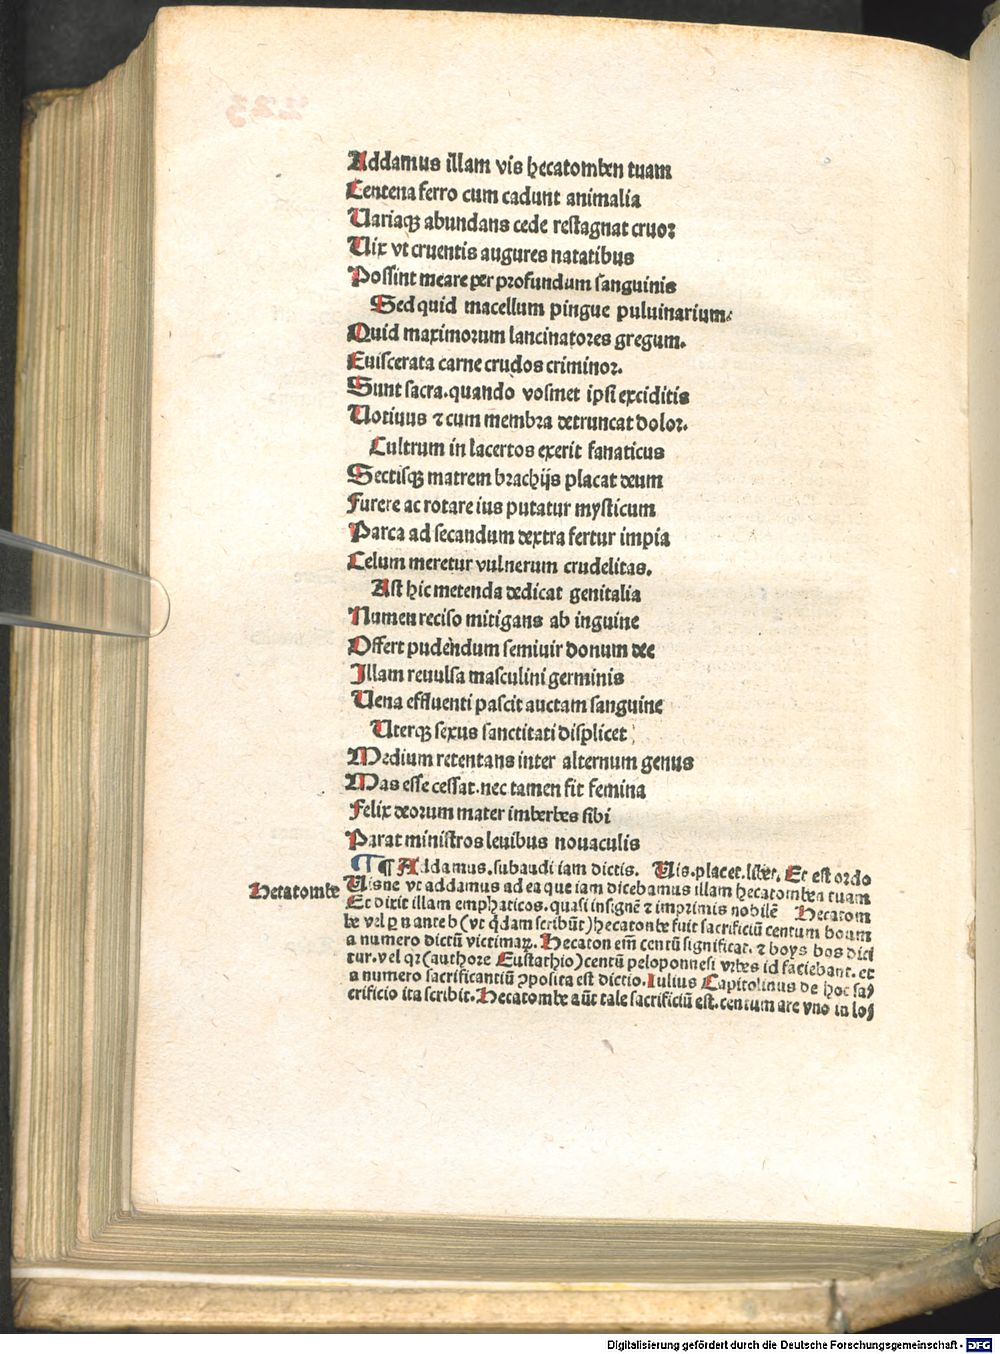 Addamus illam vis hecatomben tuam
Centena ferro cum cadunt animalia
Uariaqꝫ abundans cede restagnat cruor
Uix vt cruentis augures natatibus
Possint meare per profundum sanguinis
Sed quid macellum pingue puluinarium.
Quid maximorum lancinatores gregum.
Euiscerata carne crudos criminor.
Sunt sacra.quando vosmet ipsi exciditis
Uotiuus ⁊ cum membra detruncat dolor.
Cultrum in lacertos exerit fanaticus
Sectisqꝫ matrem brachijs placat deum
Furere ac rotare ius putatur mysticum
Parca ad secandum dextra fertur impia
Celum meretur vulnerum crudelitas.
Ast hic metenda dedicat genitalia
Numen reciso mitigans ab inguine
Offert pudendum semiuir donum dee
Illam reuulsa masculini germinis
Uena effluenti pascit auctam sanguine
Uterqꝫ sexus sanctitati displicet
Medium retentans inter alternum genus
Mas esse cessat.nec tamen fit femina
Felix deorum mater imberbes sibi
Parat ministros leuibus nouaculis
¶ Addamus.subaudi iam dictis. Uis.placet.libet. Et est ordo
Hecatombe
Uisne vt addamus ad ea que iam dicebamus illam hecatomben tuam
Et dixit illam emphaticos.quasi insignē ⁊ imprimis nobilē Hecatom
be vel ꝑ n ante b (vt qdam scribūt) hecatonbe fuit sacrificiū centum boum
a numero dictū victimaꝝ. Hecaton em̄ centū significat. ⁊ boys bos dici
tur.vel qꝛ (authore Eustathio) centū peloponnesi vrbes id faciebant. et
a numero sacrificantiū ꝓposita est dictio. Iulius Capitolinus de hoc sa
crificio ita scribit. Hecatombe aūt tale sacrificiū est. centum are vno in lo
Digitalisierung gefördert durch die Deutsche Forschungsgemeinschaft - DFG